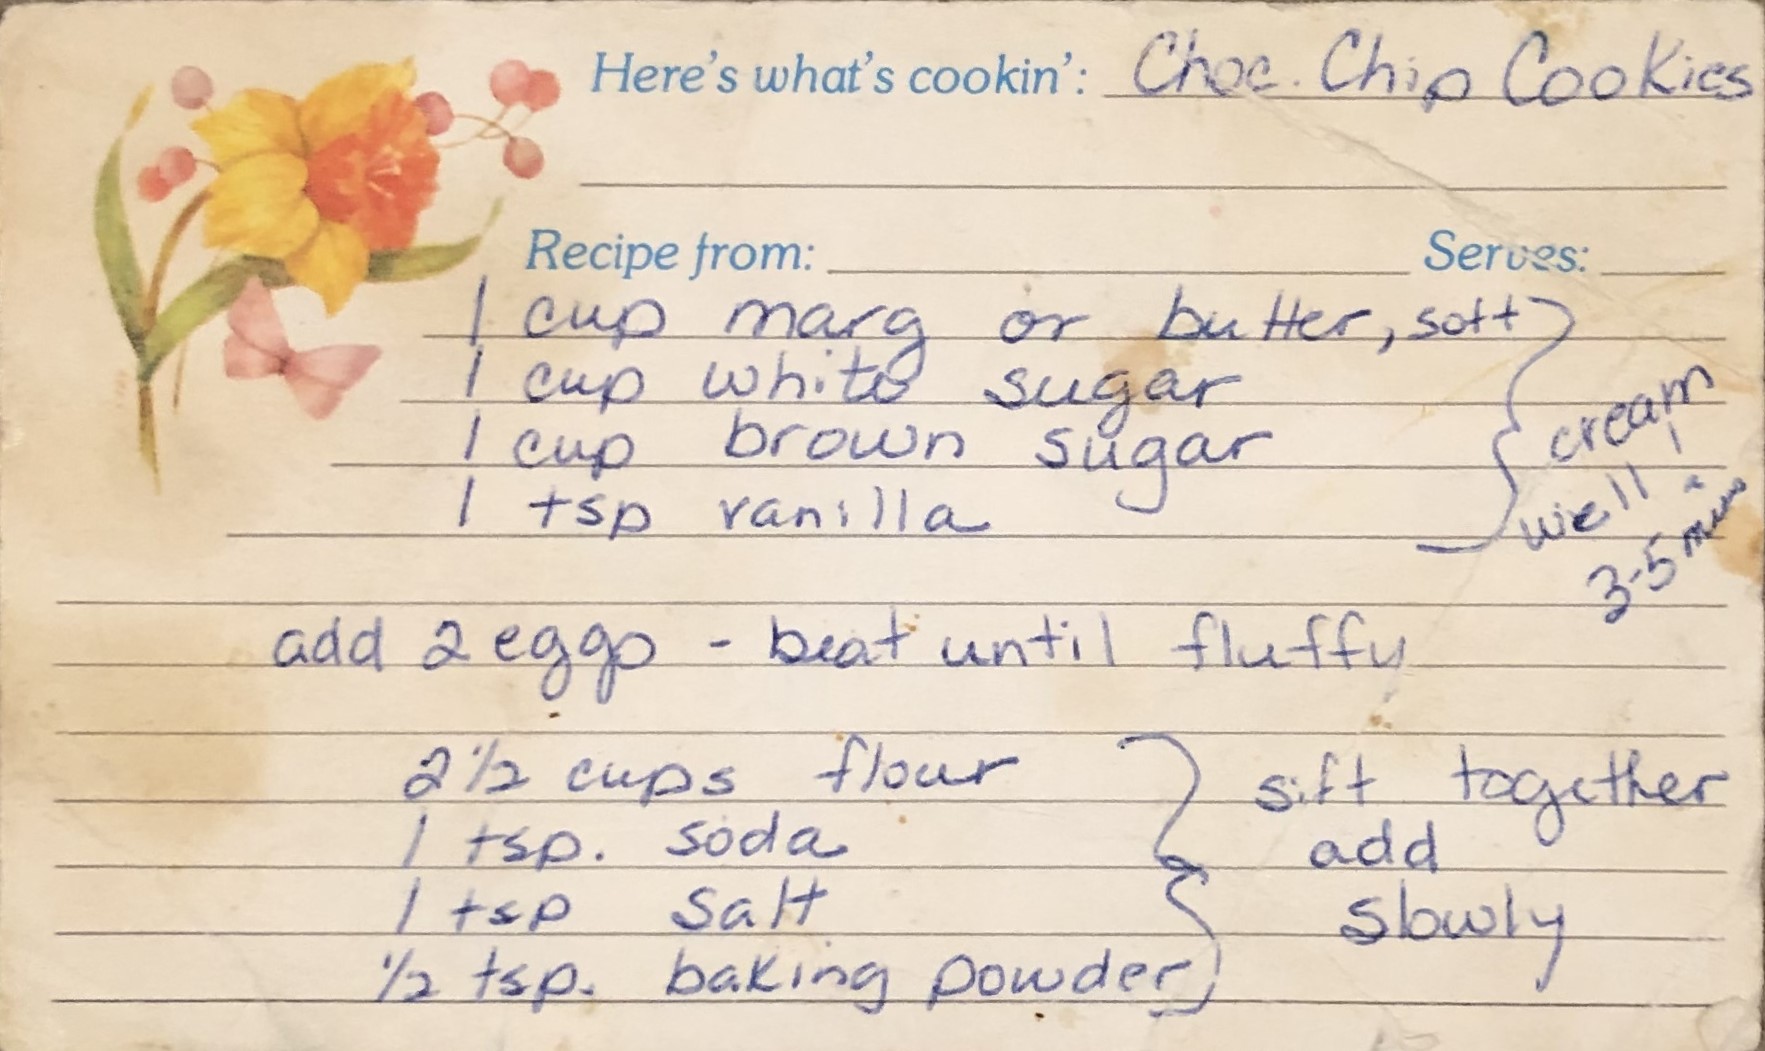 Here's what's cookin': Choc. Chip Cookies
Recipe from: Serves:
1 cup marg or butter, soft
1 cup white sugar
1 cup brown sugar
1 tsp vanilla
cream
well
3-5 mins
add 2 eggs - beat until fluffy
2 1/2 cups flour
1 tsp. soda
1 tsp salt
1/2 tsp. baking powder
sift together
add
slowly